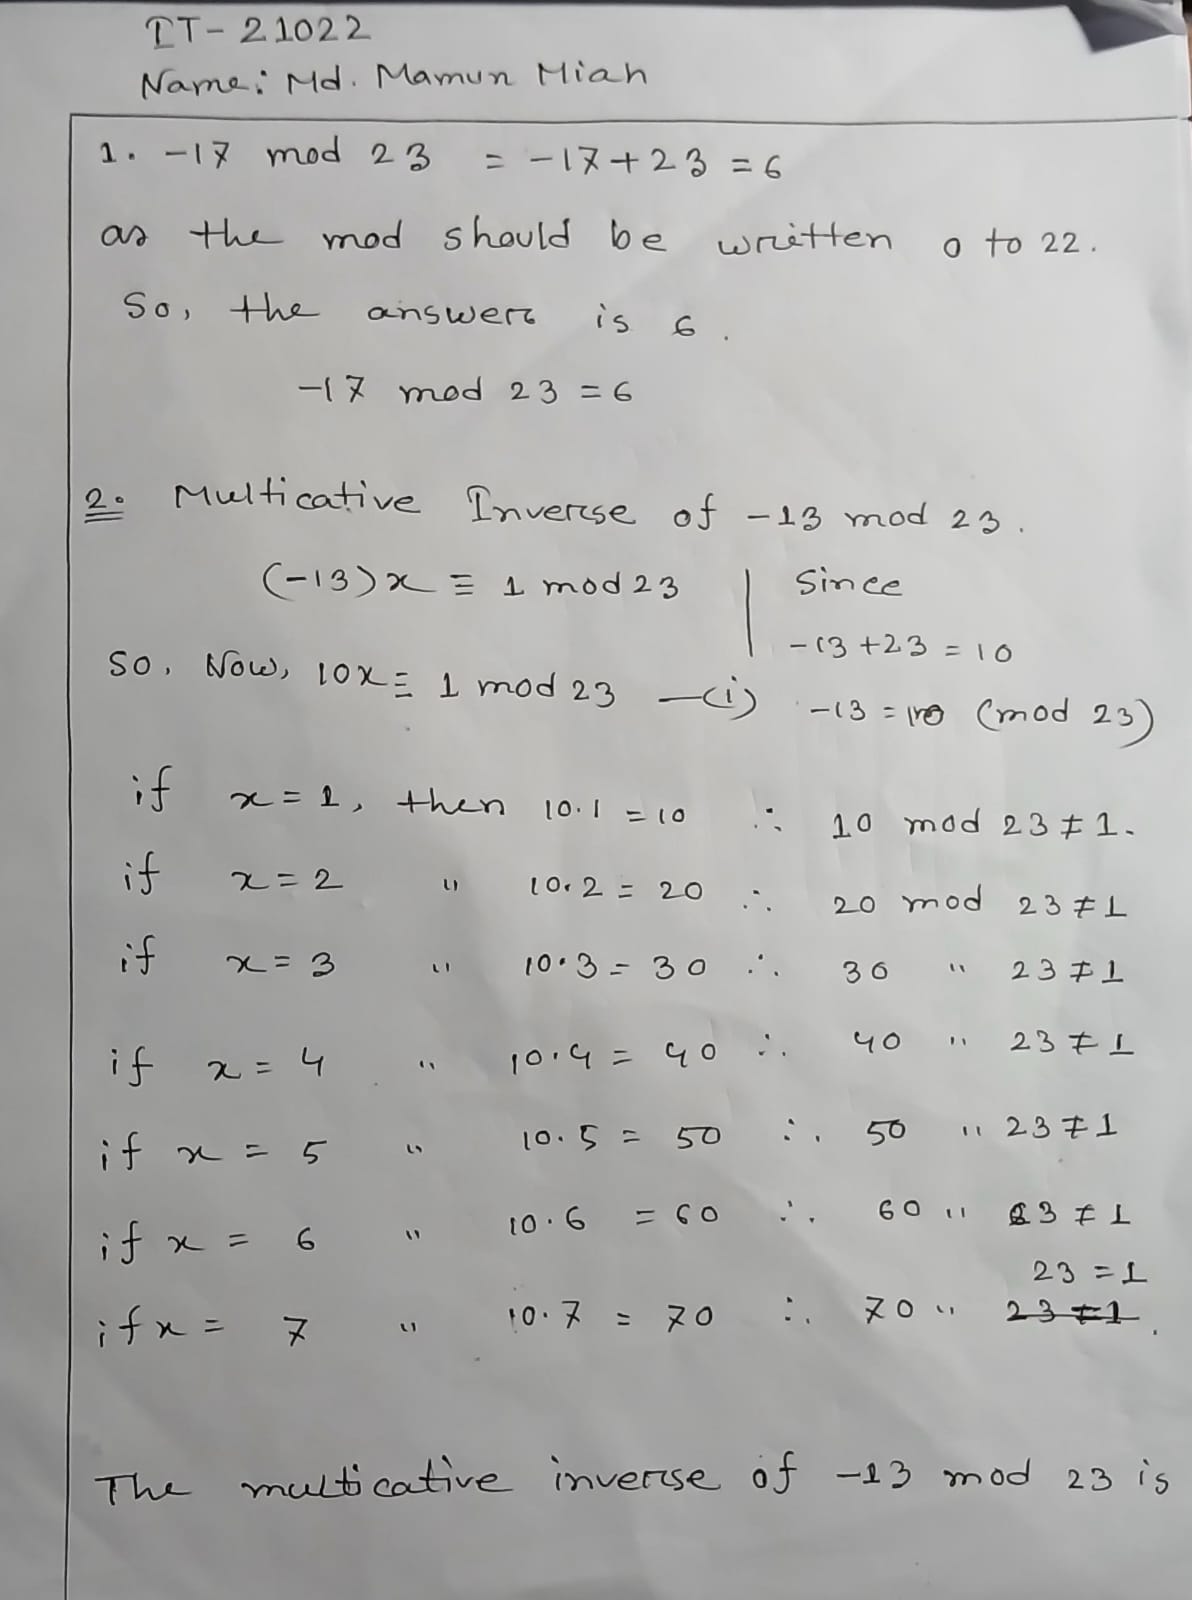 IT-21022
Name: Md. Mamun Miah
1. -17 mod 23 = -17+23 = 6
as the mod should be written 0 to 22.
So, the answer is 6.
-17 mod 23 = 6
2. Multicative Inverse of -13 mod 23.
(-13)x ≡ 1 mod 23 | Since
-13+23 = 10
So, Now, 10x ≡ 1 mod 23 —(i)
-13 = 10 (mod 23)
if x = 1, then 10.1 = 10 ∴ 10 mod 23 ≠ 1.
if x = 2 " 10.2 = 20 ∴ 20 mod 23 ≠ 1
if x = 3 " 10.3 = 30 ∴ 30 " 23 ≠ 1
if x = 4 " 10.4 = 40 ∴ 40 " 23 ≠ 1
if x = 5 " 10.5 = 50 ∴ 50 " 23 ≠ 1
if x = 6 " 10.6 = 60 ∴ 60 " 23 ≠ 1
23 = 1
if x = 7 " 10.7 = 70 ∴ 70 " 23 ≠ 1.
The multicative inverse of -13 mod 23 is